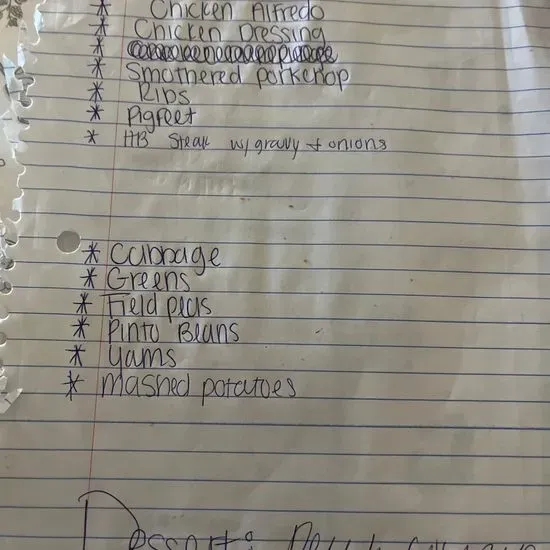 * Chicken Alfredo
* Chicken Dressing
*
* Smothered porkchop
* Ribs
* Pigfeet
* HB Steak w/ gravy + onions
* Cabbage
* Greens
* Field peas
* Pinto Beans
* Yams
* Mashed potatoes
Dessert: